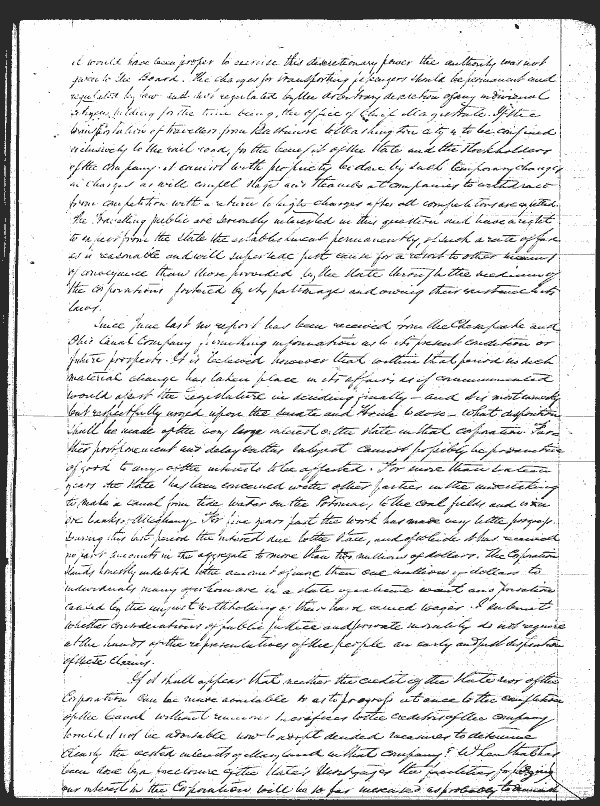 it would have been proper to exercise this discretionary power the authority was not
given to the Board. The charges for transporting passengers should be permanent and
regulated by law and not regulated by the arbitrary discretion of any individual
citizen, holding for the time being, the office of Chief Magistrate. If the
transportation of travellers from Baltimore to Washington city is to be confined
exclusively to the rail road, for the benefit of the State and the Stockholders
of the company it cannot with propriety be done by such temporary changes
in charges as will compel stage and steamboat companies to withdraw
from competition with a return to higher charges after all competitors are expelled.
The travelling public are seriously interested in this question and have a right
to expect from the State the establishment permanently, of such a rate of fare
as is reasonable and will supersede just cause for a resort to other means
of conveyance than those provided by the State through the medium of
the corporations fostered by its patronage and owing their existence to its
laws.
Since June last no report has been received from the Chesapeake and
Ohio Canal Company furnishing information as to its present condition or
future prospects. It is believed however that within that period no such
material change has taken place in its affairs as if communicated
would assist the Legislature in deciding finally - and it is most earnestly
but respectfully urged upon the Senate and House to do so - what disposition
shall be made of the very large interest of the State in that corporation. Fur-
ther postponement and delay on this subject cannot possibly be productive
of good to any of the interests to be affected. For more than
years the State has been concerned with other parties in the undertaking
to make a canal from tide water on the Potomac, to the coal fields and iron
ore banks of Allegany. For five years past the work has made very little progress.
During this last period the interest due to the State, and of which it has received
no part amounts in the aggregate to more than two millions of dollars. The Corporation
stands honestly indebted to the amount of more than one million of dollars to
individuals many of whom are in a state of extreme want and privation
caused by the unjust withholding of their hard earned wages. I submit
whether considerations of public justice and private morality do not require
at the hands of the representatives of the people an early and just disposition
of these claims.
If it shall appear that neither the credit of the State nor of the
Corporation can be made available so as to progress at once to the completion
of the Canal without ruinous sacrifices to the creditors of the company
would it not be advisable now to adopt decided measures to determine
clearly the vested interests of Maryland in that company? When that has
been done by a foreclosure of the State's Mortgages the facilities for
our interest in the Corporation will be so far increased as probably to